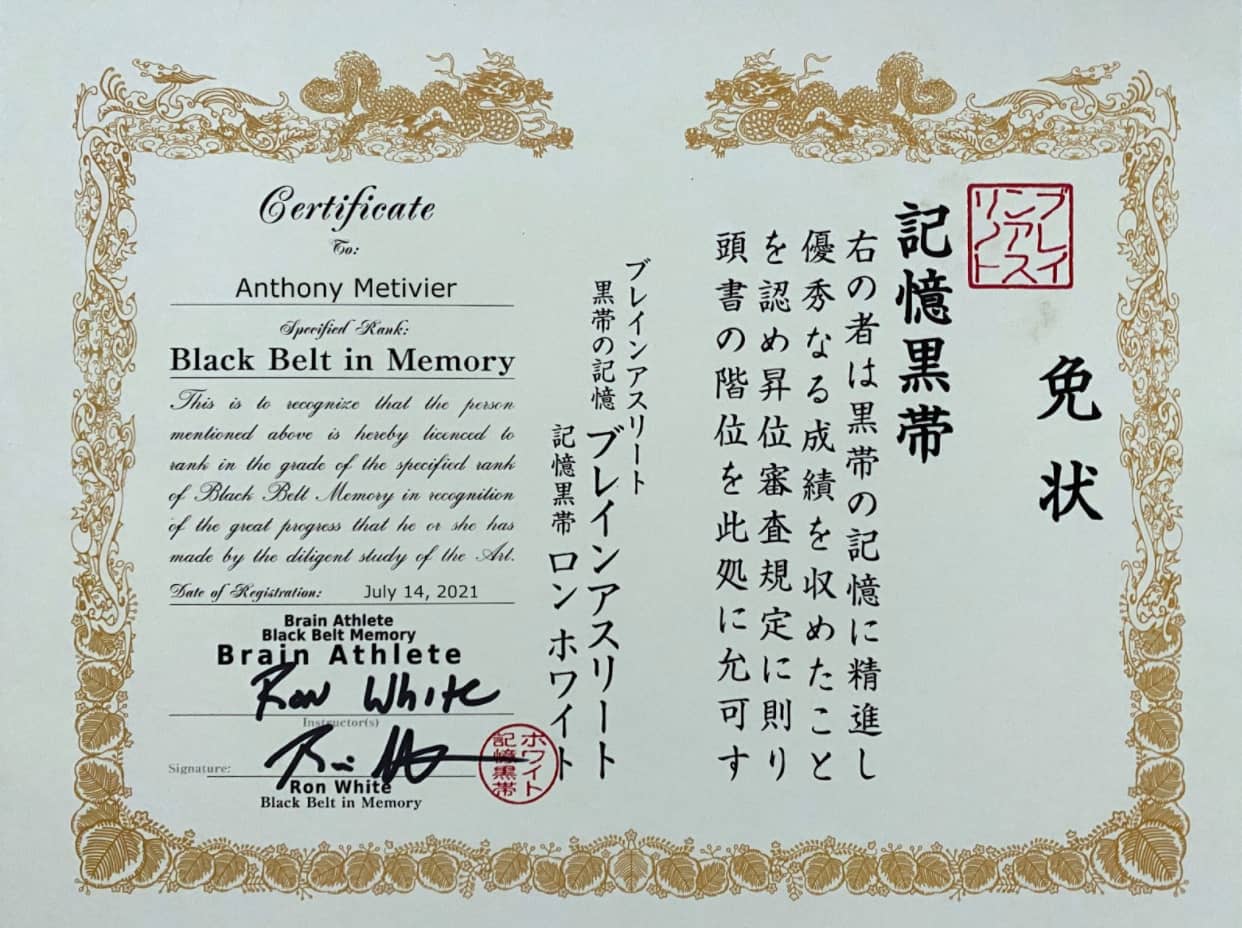 Certificate
To:
Anthony Metivier
Specified Rank:
Black Belt in Memory
This is to recognize that the person
mentioned above is hereby licenced to
rank in the grade of the specified rank
of Black Belt Memory in recognition
of the great progress that he or she has
made by the diligent study of the Art.
Date of Registration: July 14, 2021
Brain Athlete
Black Belt Memory
Brain Athlete
Ron White
Instructor(s)
Signature:
Ron White
Black Belt in Memory
ホワイト
記憶黒帯
免状
ブレイ
ンアス
リート
記憶黒帯
右の者は黒帯の記憶に精進し
優秀なる成績を収めたこと
を認め昇位審査規定に則り
頭書の階位を此処に允可す
ブレインアスリート
黒帯の記憶 ブレインアスリート
記憶黒帯 ロン ホワイト